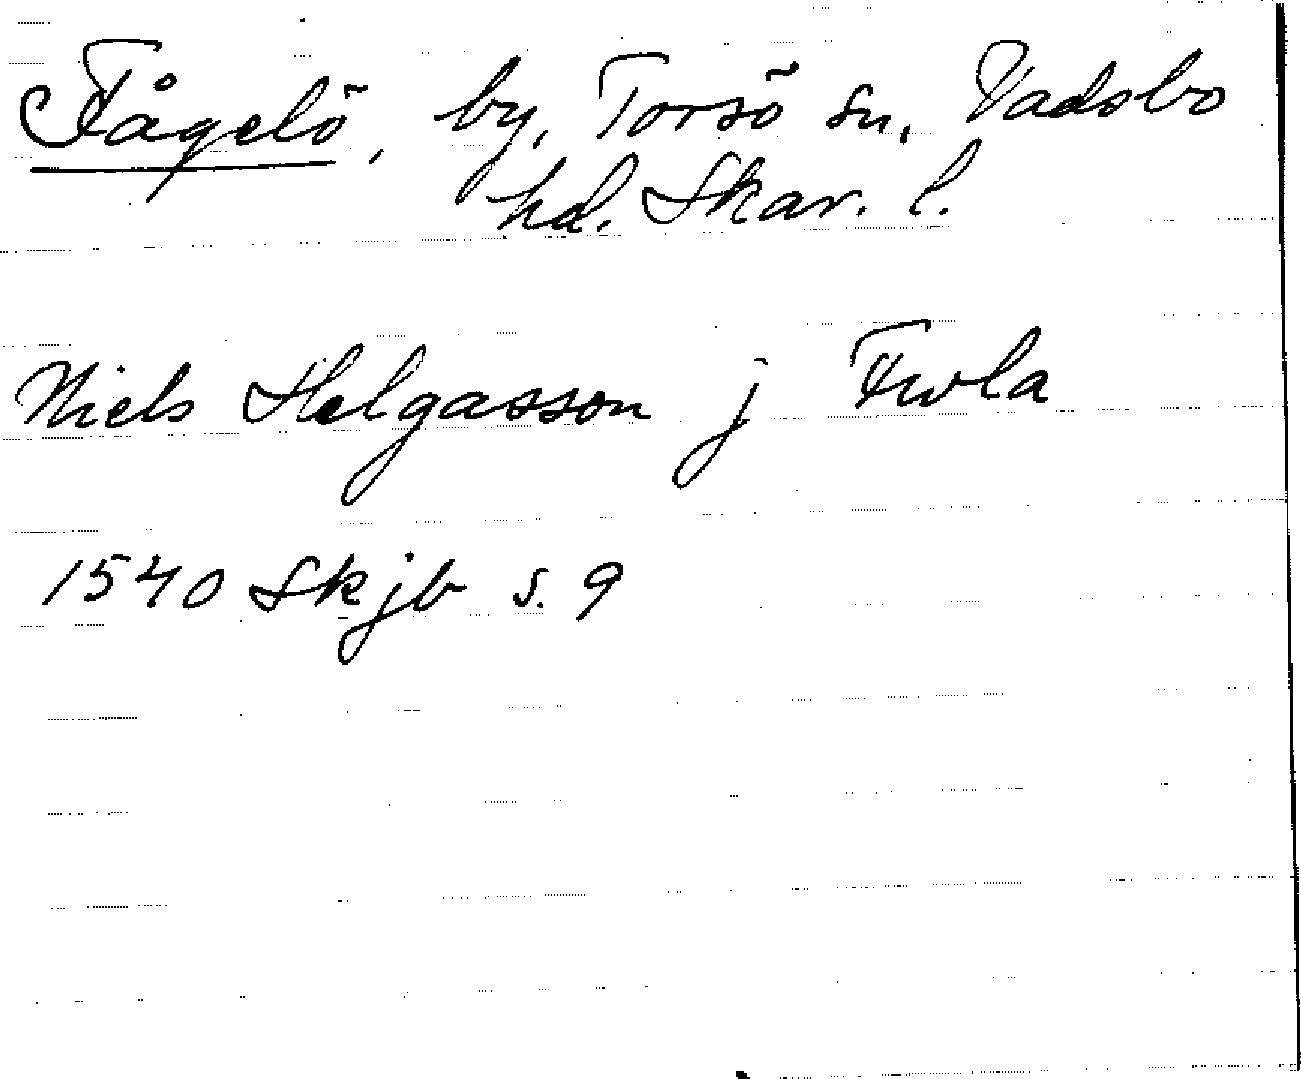 Fågelö, by, Torsö sn, Vadsbo
hd. Skar. l.
Niels Helgasson j Fwla
1540 Skjb s. 9